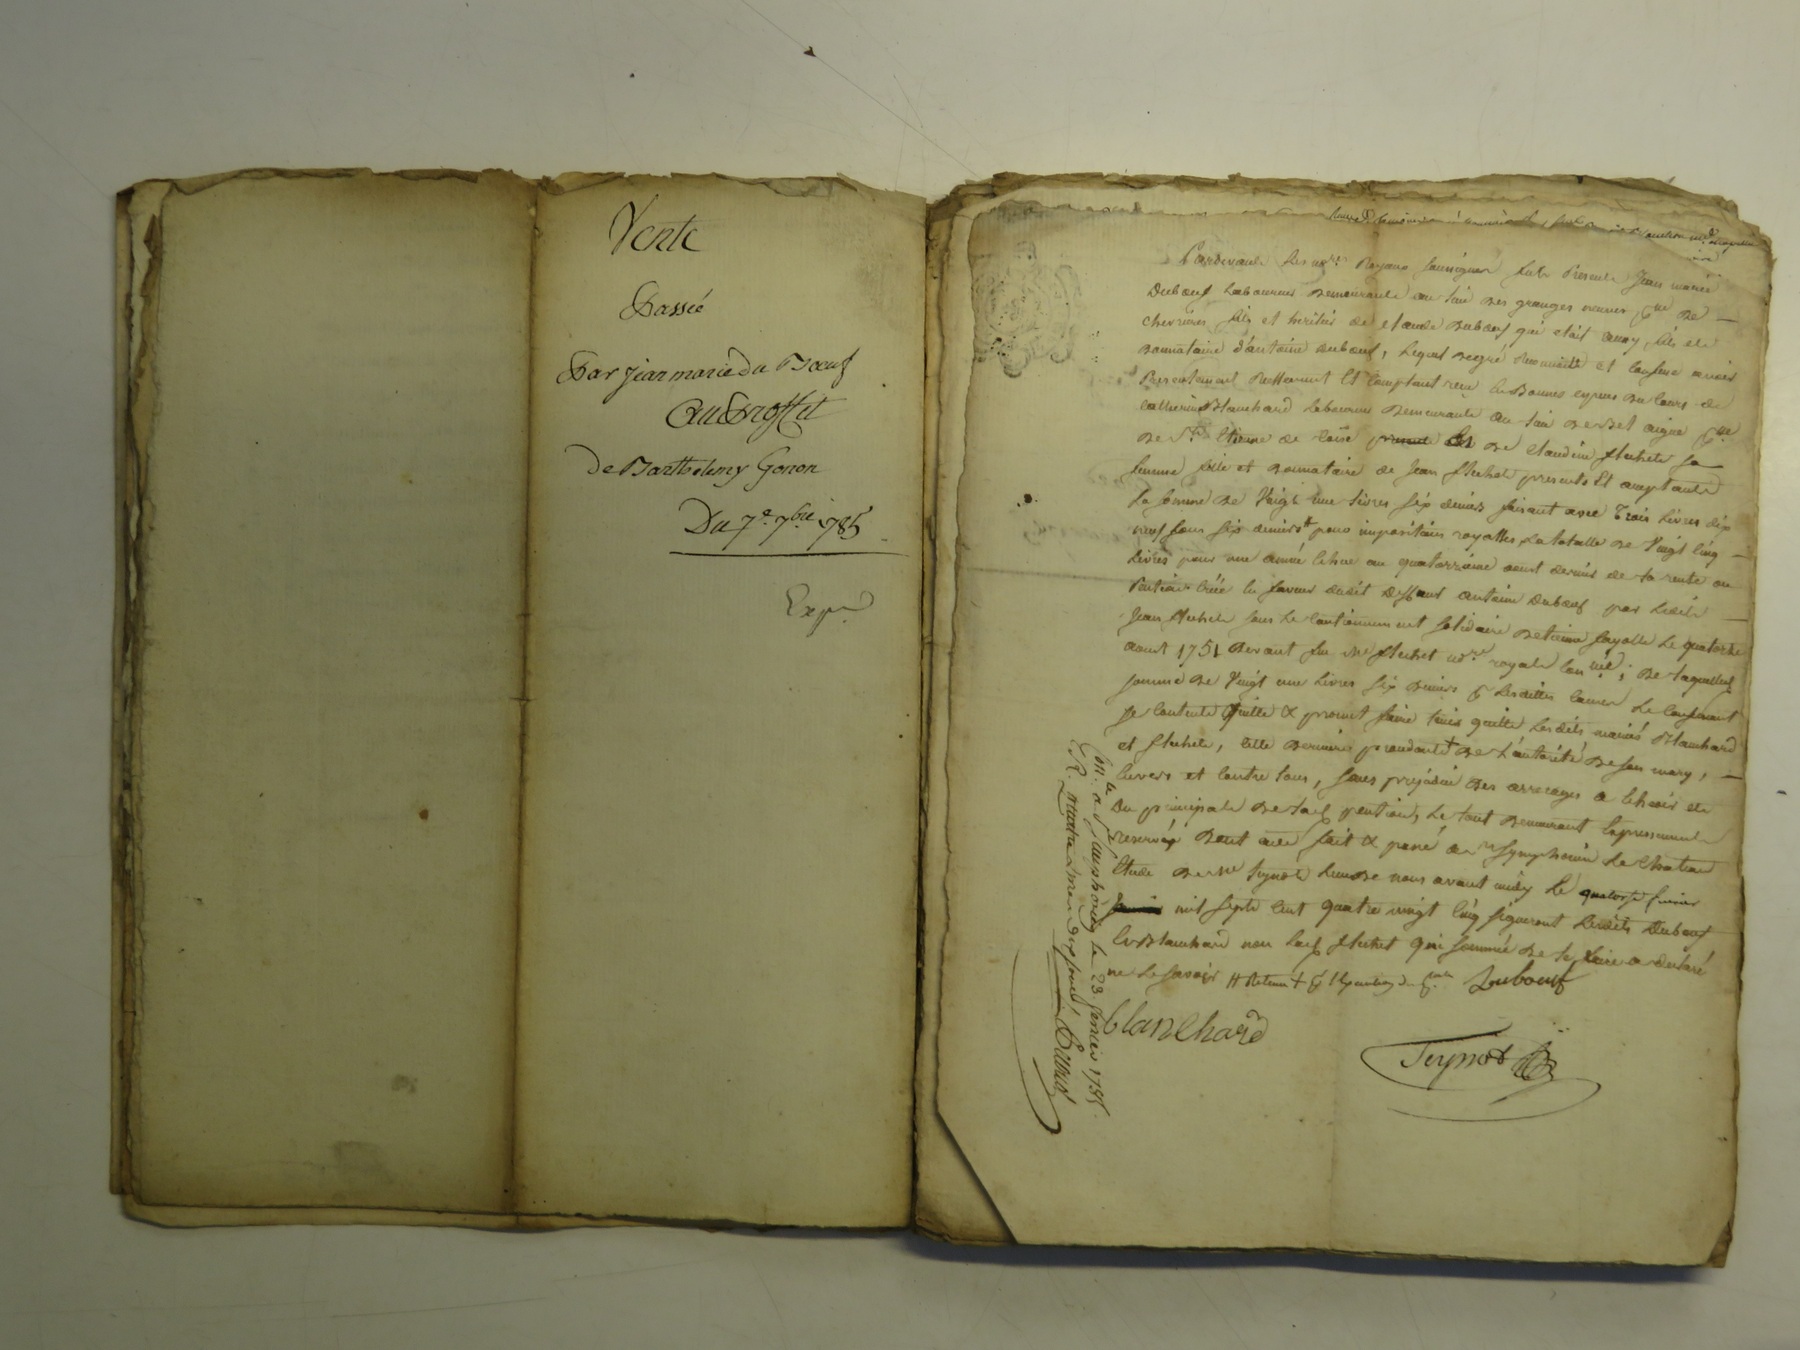 Vente
Passée
Par jean marie du Bœuf
Au Proffit
de Barthelemy Gonon
Du 7e. 7bre 1785
Expn.
Pardevant les nores. Royaux soussignés fut Present Jean marie
Duboeuf Laboureur Demeurant au lieu des granges parre de
chevrieres fils et heritier de claude Duboeuf qui etoit aussy fils et
Donnataire d'antoine duboeuf, lequel Degré reconnoit et confesse avoir
Presentement Reellement Et Comptant reçu en Bonnes especes du cours de
Blanchard Laboureur Demeurant au lieu de aigue
De St. Etienne de et De claudine fluchet sa
femme fille et Donnataire de Jean fluchet presents Et acceptants
la somme De Vingt une livres six deniers faisant avec Trois Livres dix
neuf sous six deniers pour impositions royalles la totalle De Vingt cinq
Livres pour une année echue au quatorzieme aoust dernier de la rente ou
Pention Créée en faveur dudit Deffunt antoine Duboeuf par ledit
Jean fluchet sous le Cautionnement solidaire fayolle Le quatorze
aoust 1751 Devant feu Me. fluchet nore. royal ; De laquelle
somme De Vingt une Livres six Deniers
se contente quitte & promet faire tenir quitte Lesdits mariés Blanchard
et fluchet, cette derniere procedante De L'autorité De son mary,
Envers et Contre tous, sans prejudice des arrerages a Echoir et
Du principal De la de pention, Le tout Demeurant Expressement
reservé Dont acte fait & passé a St. Symphorien Le Chateau
Etude De Me. Teynot L'un De nous avant midy Le quatorse fevrier
mil sept cent quatre vingt cinq signeront Lesdits Duboeuf
Et Blanchard non lad. fluchet qui sommée De le faire a declaré
ne le savoir Duboeuf
blanchard
Teynot
Con. a St. Simphorien le 23. fevrier 1785.
R.